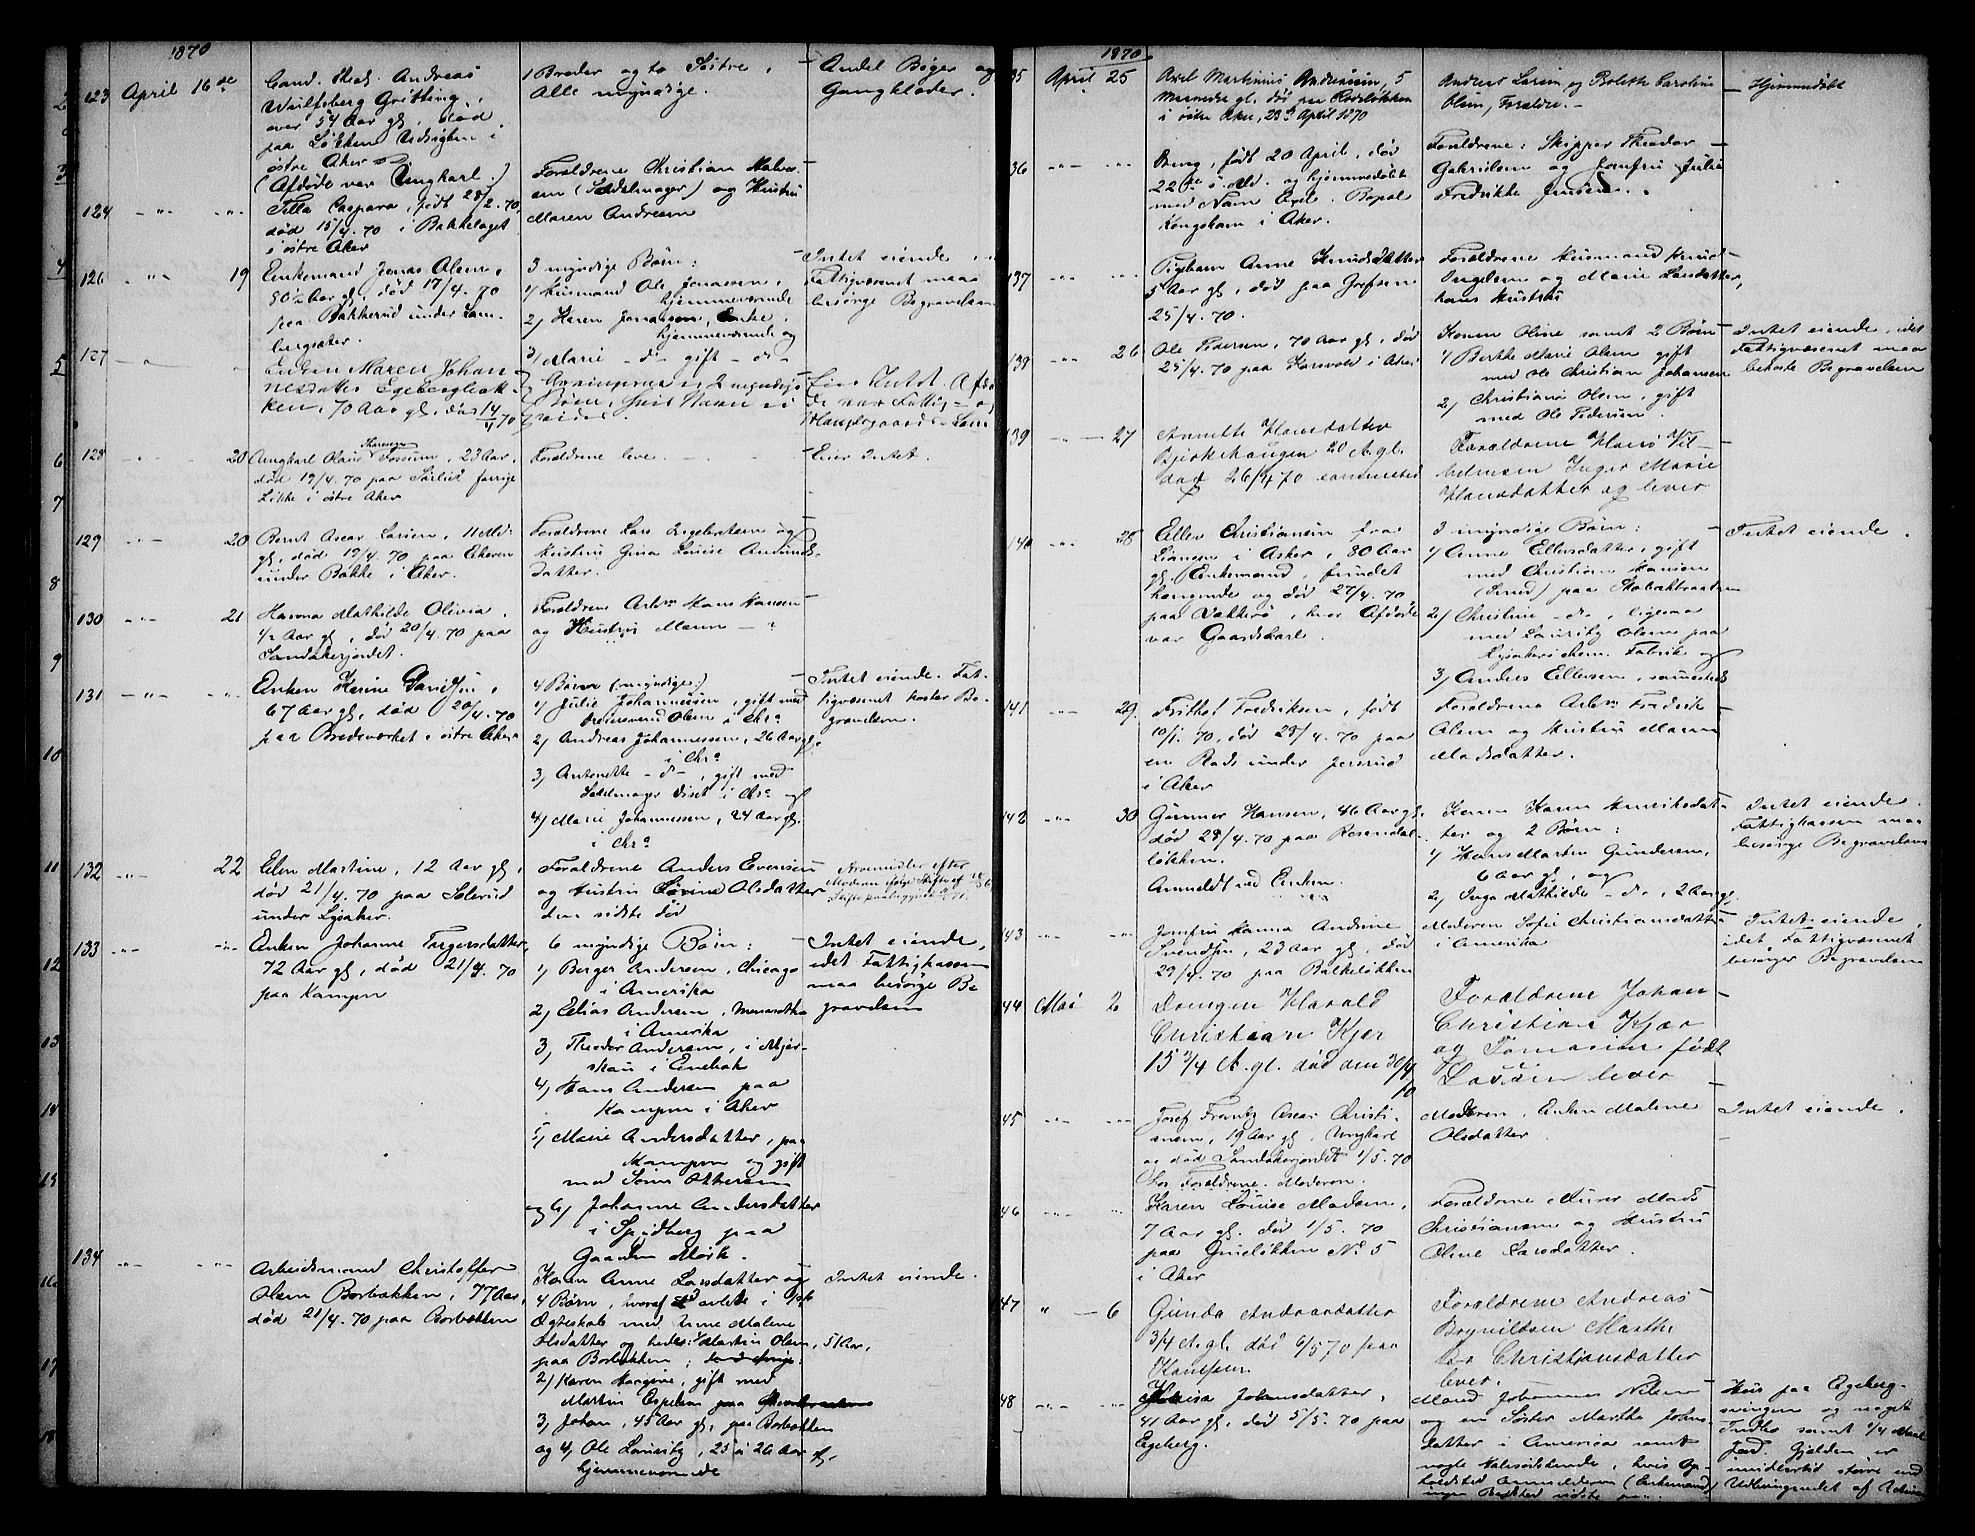 1870
123 April 16de Cand. theol. Andreas
Wulfsberg Grötting,
over 54 Aar gl, død
paa Løkken Udsigten i
østre Aker
(Afdøde var Ungkarl.)
1 Broder og to Søstre,
Alle myndige.
Andel Bøger og
Gangklæder.
124 — " — — " — Tilla Caspara, født 28/2.70,
død 15/4.70 i Bækkelaget
i østre Aker
Forældrene Christian Halvor-
sen (Sadelmager) og Hustru
Maren Andresen
126 — " 19 Enkemand Jonas Olsen,
80½ Aar gl, død 17/4.70
paa Bakkerud under Lam-
bergsæter.
3 myndige Børn:
1) Husmand Ole Jonassen,
hjemmeværende
2) Karen Jonassen, Enke,
hjemmeværende og
3) Marie — d — gift — d —
Intet eiende
Fattigvæsenet maa
besørge Begravelsen
127 — " Enken Maren Johan-
nesdatter Egebergbak-
ken, 70 Aar gl, død 14/4 70
2 myndige
Børn, hvis Navn ei
vides.
Eier Intet. Afdø-
de var Fattig — og
128 — " 20 Ungkarl Olaus Thoresen Fossum, 23 Aar,
død 19/4.70 paa
Løkke i østre Aker
Forældrene leve.
Eier Intet.
129 — " 20 Bernt Oscar Larsen, 11 Md.
gl, død 19/4.70 paa Ekeren
under Bakke i Aker.
Forældrene Lars Ingebretsen og
Hustru Gina Lovise Amunds-
datter.
130 — " 21 Hanna Mathilde Olivia,
½ Aar gl, død 20/4.70 paa
Sandakerjordet.
Forældrene Arbm Hans Hansen
og Hustru Maren — "
131 — " — — " — Enken Karine Danielsen,
67 Aar gl, død 20/4.70
paa Bredeværket i østre Aker
4 Børn (myndige:)
1) Julie Johannessen, gift med
Olsen i Chra
2) Andreas Johannessen, 26 Aar gl,
i Chra
3) Antonette — d —, gift med
Sadelmager Diset i Chra og
4) Marie Johannessen, 24 Aar gl.
i Chra
Intet eiende. Fat-
tigvæsenet koster Be-
gravelsen.
132 — " 22 Elen Martine, 12 Aar gl,
død 21/4.70 paa Solerud
under Lysaker.
Forældrene Anders Evensen
og Hustru Lovine Olsdatter
den sidste død
Arvemidler efter
Moderen ifølge Skifte af
133 — " — " — Enken Johanne Torgersdatter,
72 Aar gl, død 21/4.70
paa Kampen
6 myndige Børn:
1) Berger Andersen, Chicago
i Amerika
2) Elias Andersen,
i Amerika
3) Theodor Andersen, i Mjær-
skau i Enebak
4) Hans Andersen paa
Kampen i Aker
5) Marie Andersdatter, paa
Kampen og gift
med Søren Ottersen
og 6) Johanne Andersdatter
i Spydberg paa
Gaarden Mørk.
Intet eiende,
idet Fattigkassen
maa besørge Be-
gravelsen
134 — " — " Arbeidsmand Christoffer
Olsen Borbakken, 77 Aar,
død 21/4.70 paa Borbakken
Konen Anne Larsdatter og
4 Børn, hvoraf 3 avlede i
Ægteskab med Anne Malene
Olsdatter og heder: 1) Martin Olsen, 51 Aar,
paa Borbakken;
2) Karen Margine, gift med
Martin Espelsen paa
3) Johan, 45 Aar gl, paa Borbakken
og 4) Ole Lauritz, 25 à 26 Aar gl.
hjemmeværende
Intet eiende.
1870
35 April 25 Axel Martinius Andreassen, 5
Maaneder gl. død paa Rodeløkken
i østre Aker, 23de April 1870
Anders Larsen og Bolethe Caroline
Olsen, Forældre. —
Hjemmedøbt
36 — " — — " — Dreng, født 20 April, død
22de s. Md. og hjemmedøbt
med Navn Axel. Bopæl
Kongshavn i Aker.
Forældrene: Skipper Theodor
Gabrielsen og Jomfru Julie
Fredrikke Jensen.
137 — " — — " — Pigebarn Anne Knudsdatter
5 Aar gl, død paa Grefsen
25/4.70.
Forældrene Husmand Knud
Engelsen og Marie Larsdatter,
hans Hustru
139 — " 26 Ole Pedersen, 70 Aar gl, død
25/4.70 paa Korsvold i Aker
Konen Oline samt 2 Børn
1) Berthe Marie Olsen gift
med Ole Christian Johansen
2) Christiane Olsen, gift
med Ole Pedersen.
Intet eiende, idet
Fattigvæsenet maa
bekoste Begravelsen
139 — " — 27 Annette Hansdatter
Bjerkehaugen 20 A. gl.
død 26/4 70 sammesteds
Forældrene Hans Vil-
helmsen Inger Marie
Hansdatter og lever
140 — " 28 Ellev Christiansen fra
Liansen i Asker, 80 Aar
gl, Enkemand, fundet
hængende og død 27/4.70
paa Vækkerø, hvor Afdøde
var Gaardskarl.
3 myndige Børn:
1) Anne Ellevsdatter, gift
med Christian Hansen
(Smed) paa
2) Christine — d —, ligesaa
med Lauritz Olsen paa
Fabrik og
3) Anders Ellevsen, sammesteds
Intet eiende.
141 — " 29. Frithof Fredriksen, født
10/1.70, død 28/4.70 paa
en Plads under
i Aker
Forældrene Arbm Fredrik
Olsen og Hustru Maren
Madsdatter.
142 — " 30 Gunner Hansen, 46 Aar gl,
død 28/4.70 paa Rosendal-
løkken.
Anmeldt ved Enken.
Konen Karen Henriksdat-
ter og 2 Børn:
1) Hans Martin Gundersen,
6 Aar gl, og
2) Inga Mathilde — d —, 2 Aar gl.
Intet eiende.
Fattigkassen maa
besørge Begravelsen
43 — " " Jomfru Hanna Andrine
Svendsen, 23 Aar gl, død
29/4.70 paa Balkeløkken
Moderen Sofie Christiansdatter
i Amerika
Intet eiende,
idet Fattigvæsenet
besørger Begravelsen
44 Mai 2 Drengen Harald
Christian Kjær
15 3/4 A. gl. død den 30/4
70
Forældrene Johan
Christian Kjær
og Tomasine født
lever
45 — " — " Josef Frantz Oscar Christi-
ansen, 19 Aar gl, Ungkarl
og død Sandakerjordet 1/5.70
Forældrene. Moderen.
Moderen, Enken Malene
Olsdatter
Intet eiende.
46 — " " Karen Lovise Madsen,
7 Aar gl. død 1/5.70
paa Grueløkken No 5
i Aker
Forældrene Murer Mads
Christiansen og Hustru
Oline Larsdatter.
47 " — 6 Gunda Andreasdatter
3/4 A. gl. død 6/5 70 paa
Kampen
Forældrene Andreas
Brynildsen Marthe
Christiansdatter
lever.
48 — " — " Johansdatter,
41 Aar gl, død 5/5.70 paa
Egeberg.
Mand Johannes Nilsen
og en Søster Marthe Johns-
datter i America samt
nogle Halvsødskende, hvis Op-
holdssted Anmelderen (Enkemand)
Hus paa Egeberg-
svingen og noget
Indbo samt 1/4 Maal
Jord. Gjælden er
imidlertid større end
Udbringendet af